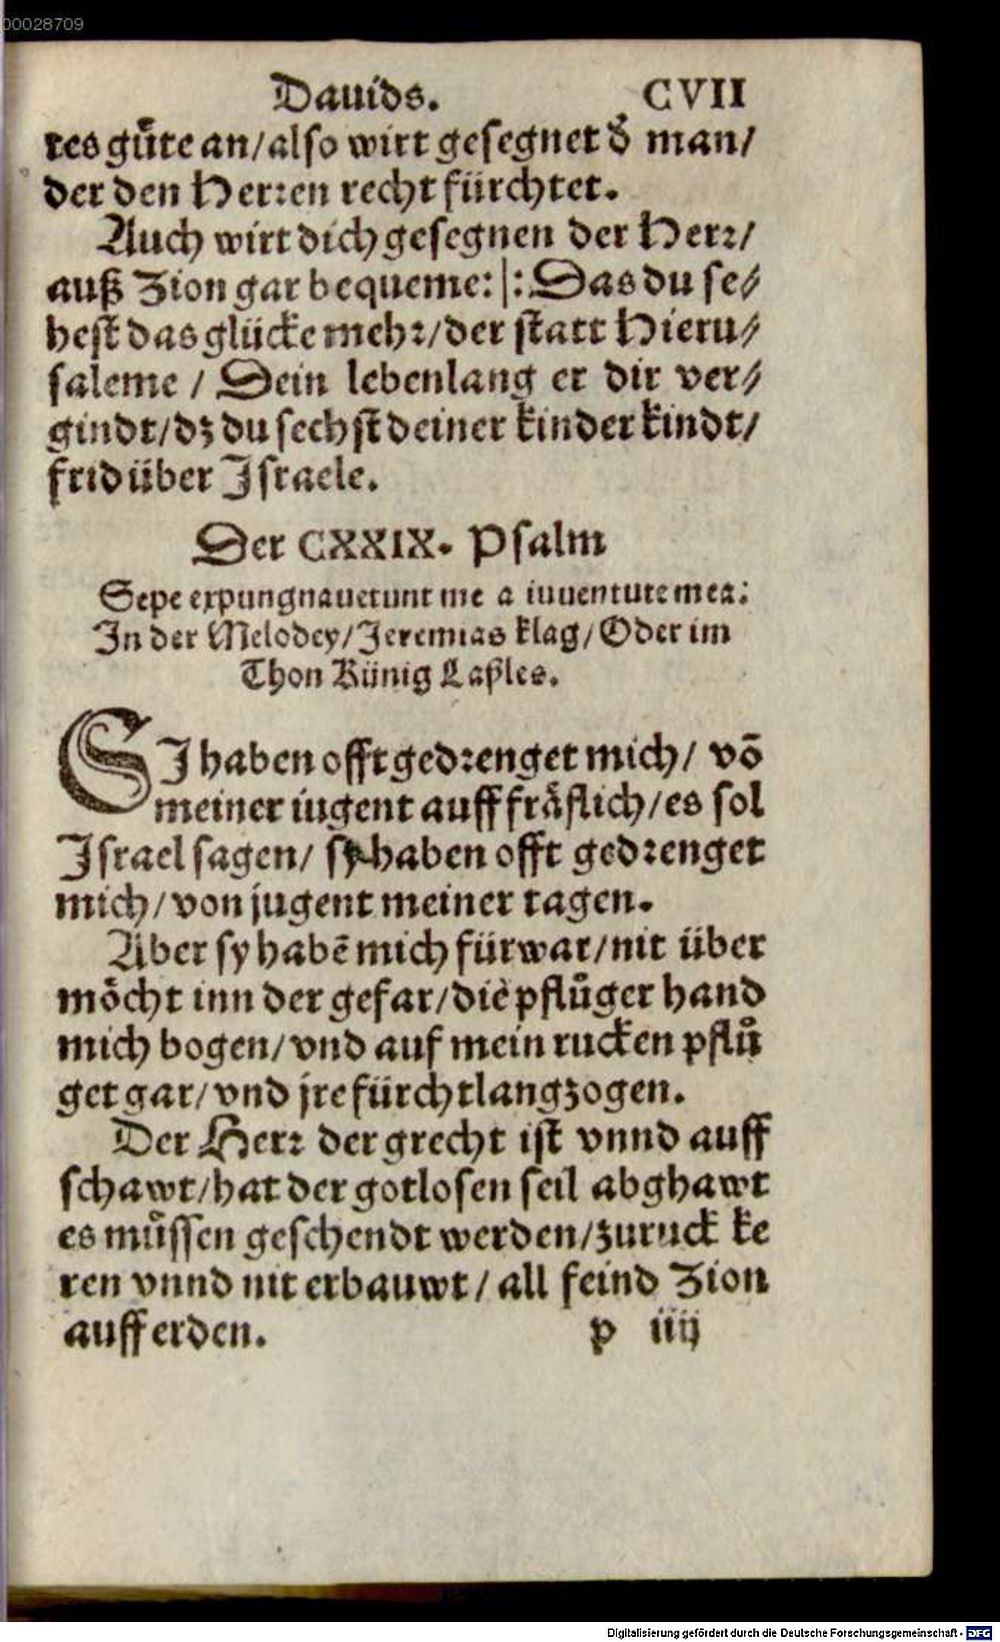 00028709
Dauids. CVII
tes guͤte an/also wirt gesegnet d̕ man/
der den Herren recht fürchtet.
Auch wirt dich gesegnen der Herr/
auß Zion gar bequeme:|:Das du se⸗
hest das glücke mehr/der statt Hieru⸗
saleme / Dein lebenlang er dir ver⸗
gindt/dz du sechst deiner kinder kindt/
frid über Israele.
Der CXXIX. Psalm
Sepe expungnauerunt me a iuuentute mea:
In der Melodey/Jeremias klag/Oder im
Thon Künig Laßles.
SI haben offt gedrenget mich/ võ
meiner iugent auff fraͤflich/es sol
Israel sagen/ sy haben offt gedrenget
mich/von jugent meiner tagen.
Aber sy habẽ mich fürwar/nit über
moͤcht inn der gefar/die pfluͤger hand
mich bogen/vnd auf mein rucken pfluͤ
get gar/vnd jre fürcht lang zogen.
Der Herr der grecht ist vnnd auff
schawt/hat der gotlosen seil abghawt
es muͤssen geschendt werden/zuruck ke
ren vnnd nit erbauwt/all feind Zion
auff erden. p iiij
Digitalisierung gefördert durch die Deutsche Forschungsgemeinschaft - DFG